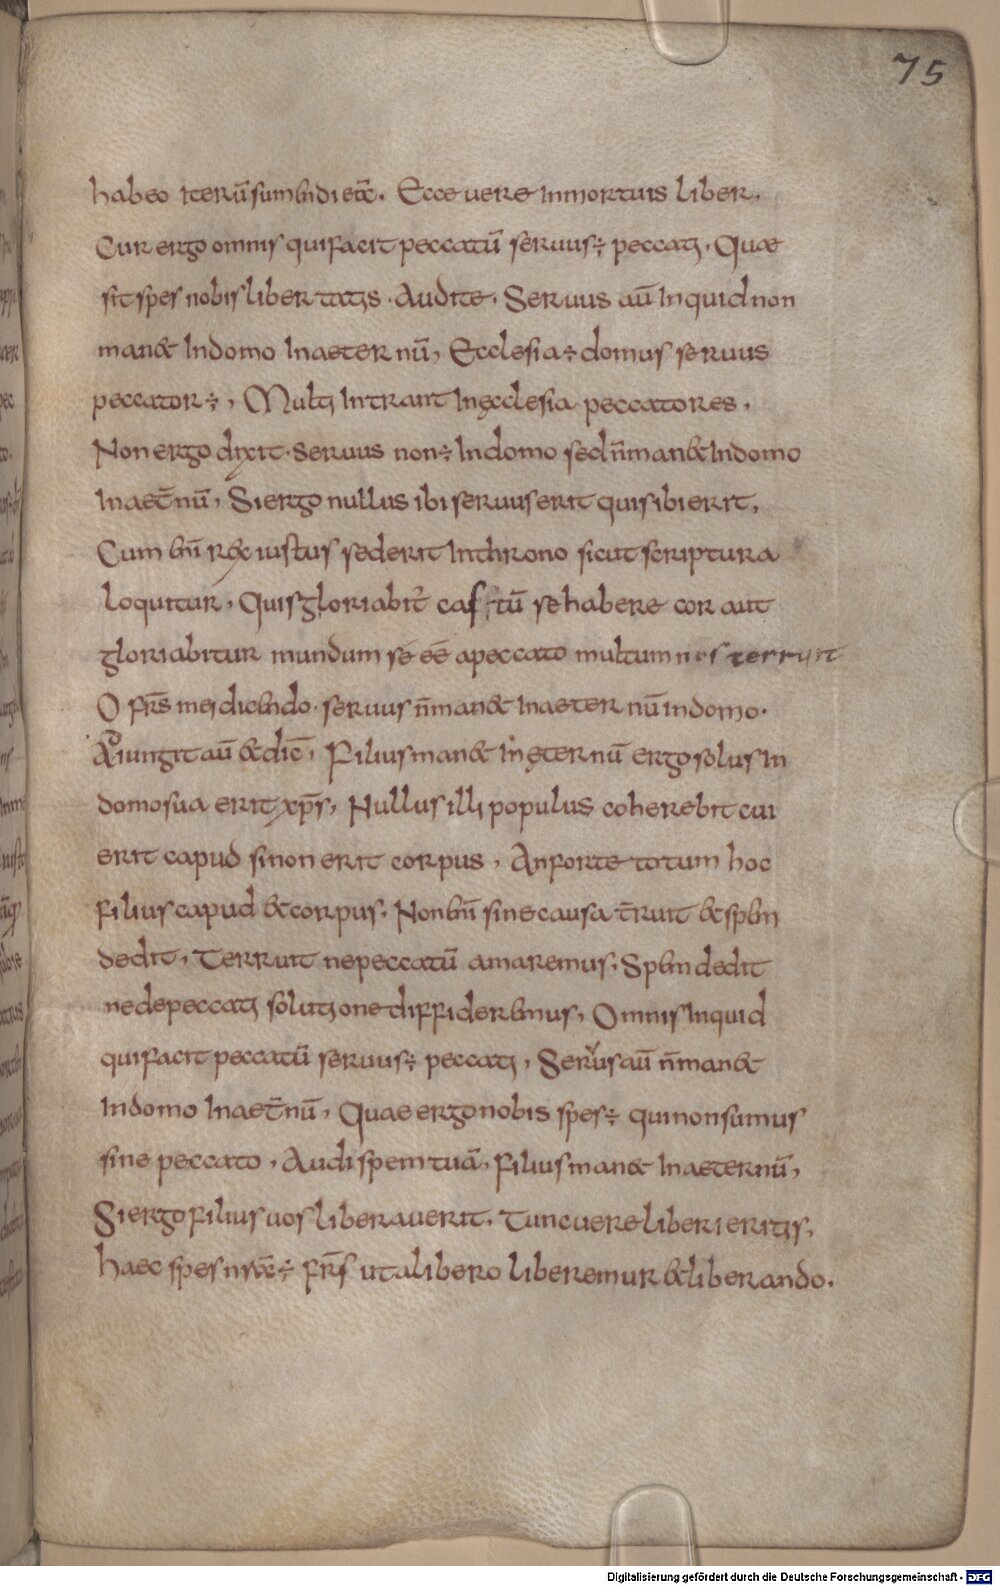 75
habeo iterū sumendi eā. Ecce vere inmortuis liber.
Cur ergo omnis qui facit peccatū servus ÷ peccati. Quae
sit spes nobis libertatis. Audite. Servus aū inquid non
man& in domo in aeternū, Ecclesia ÷ domus servus
peccator ÷, Multi intrant in ęcclesia peccatores.
Non ergo dixit. servus non ÷ in domo sed n̄ man& in domo
in aet̄nū, Si ergo nullus ibi servus erit quis ibi erit.
Cum enī rex iustus sederit in throno sicut scriptura
loquitur, Quis gloriabit̄ castū se habere cor aut
gloriabitur mundum sé éé a peccato multum nos terruit
O fr̄s mei dicendo. servus n̄ man& in aeternū in domo.
Adiungit aū & dic̄, Filius man& in ęternū ergo solus in
domo sua erit xp̄s, Nullus illi populus coherebit cui
erit capud si non erit corpus, An forte totum hoc
filius capud & corpus. Non enī sine causa t̄ruit & spem
dedit, Terruit ne peccatū amaremus, Spem dedit
ne de peccati solutione diffideremus, Omnis inquid
qui facit peccatū servus ÷ peccati, Servus aū n̄ man&
in domo in aet̄nū, Quae ergo nobis spes ÷ qui non sumus
sine peccato, Audi spem tuā, filius man& in aeternū,
Si ergo filius vos liberaverit. Tunc vere liberi eritis.
haec spes n̄ ÷ fr̄s ut a libero liberemur & liberando.
Digitalisierung gefördert durch die Deutsche Forschungsgemeinschaft - DFG